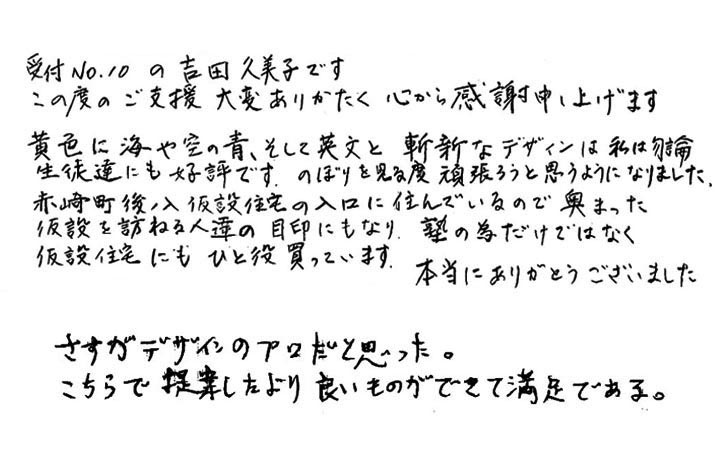 受付No.10 の 吉田 久美子です
この度の ご支援 大変ありがたく 心から感謝申し上げます
黄色に 海や空の青、そして英文と 斬新なデザインは 私は勿論
生徒達にも 好評です。のぼりを見る度 頑張ろうと思うようになりました。
赤崎町後ノ入 仮設住宅の入口に 住んでいるので 奥まった
仮設を訪ねる人達の 目印にもなり、塾の為だけではなく
仮設住宅にも ひと役 買っています。
本当にありがとうございました
さすがデザインのプロだと思った。
こちらで 提案したより 良いものができて満足である。